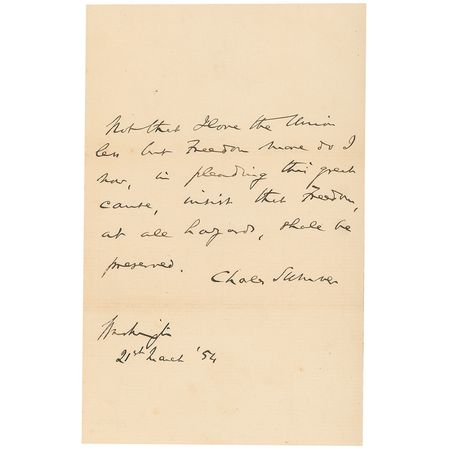 Not that I love the Union
less but Freedom more do I
now, in pleading this great
cause, insist that Freedom,
at all hazards, shall be
preserved.
Charles Sumner
Washington
21st March '54